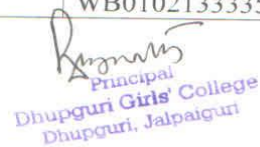 WB0102133335
Principal
Dhupguri Girls' College
Dhupguri, Jalpaiguri